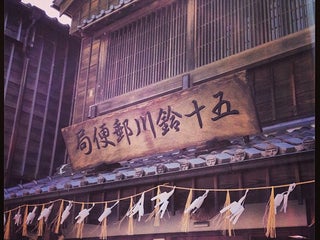 五十鈴川郵便局